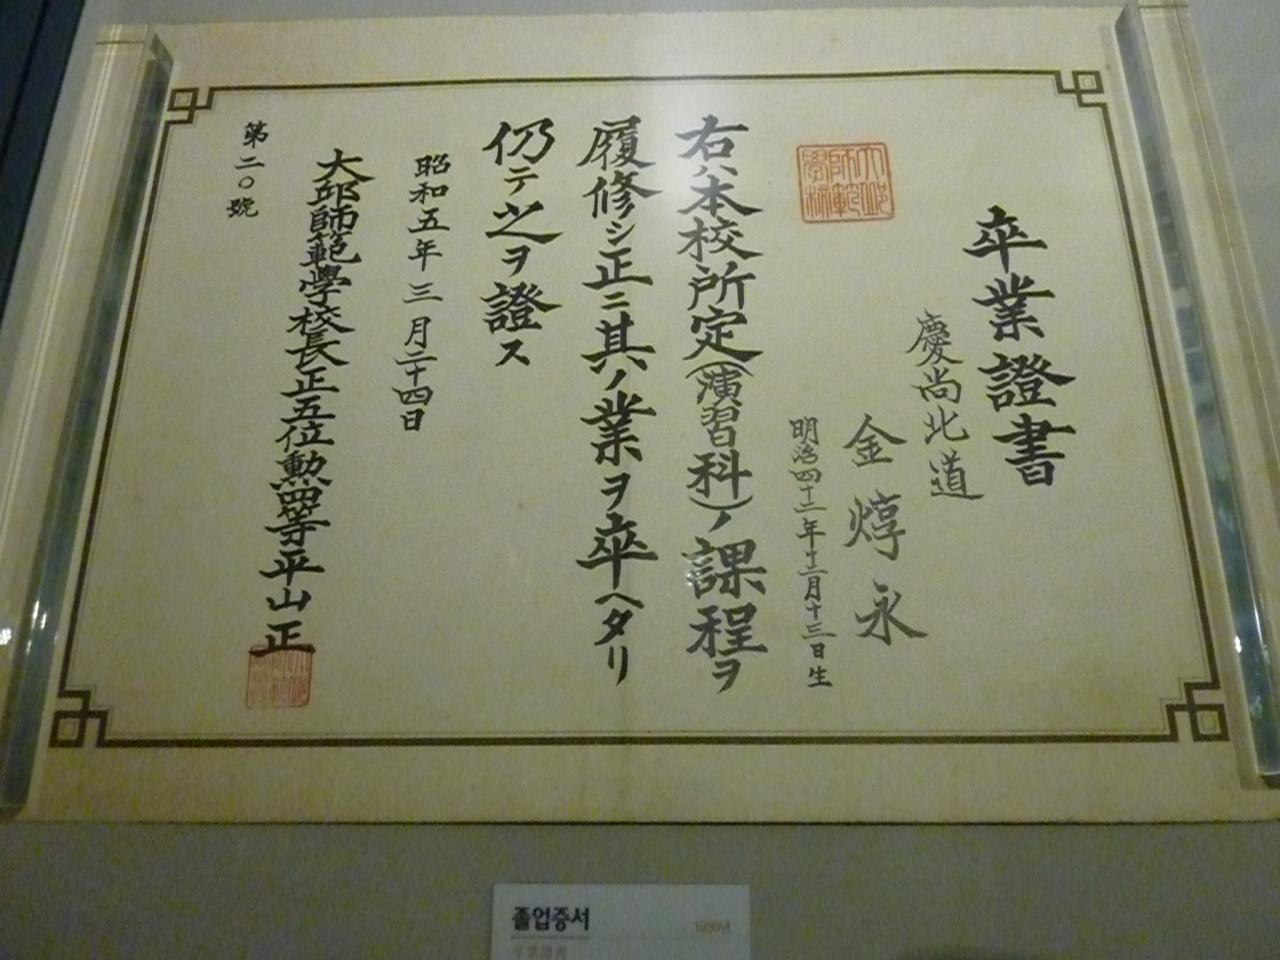 卒業證書
慶尚北道
金焞永
明治四十二年十二月十三日生
大邱
師範
學校
右ハ本校所定(演習科)ノ課程ヲ
履修シ正ニ其ノ業ヲ卒ヘタリ
仍テ之ヲ證ス
昭和五年三月二十四日
大邱師範學校長正五位勲四等平山正
第二〇號
졸업증서
1930년
卒業證書